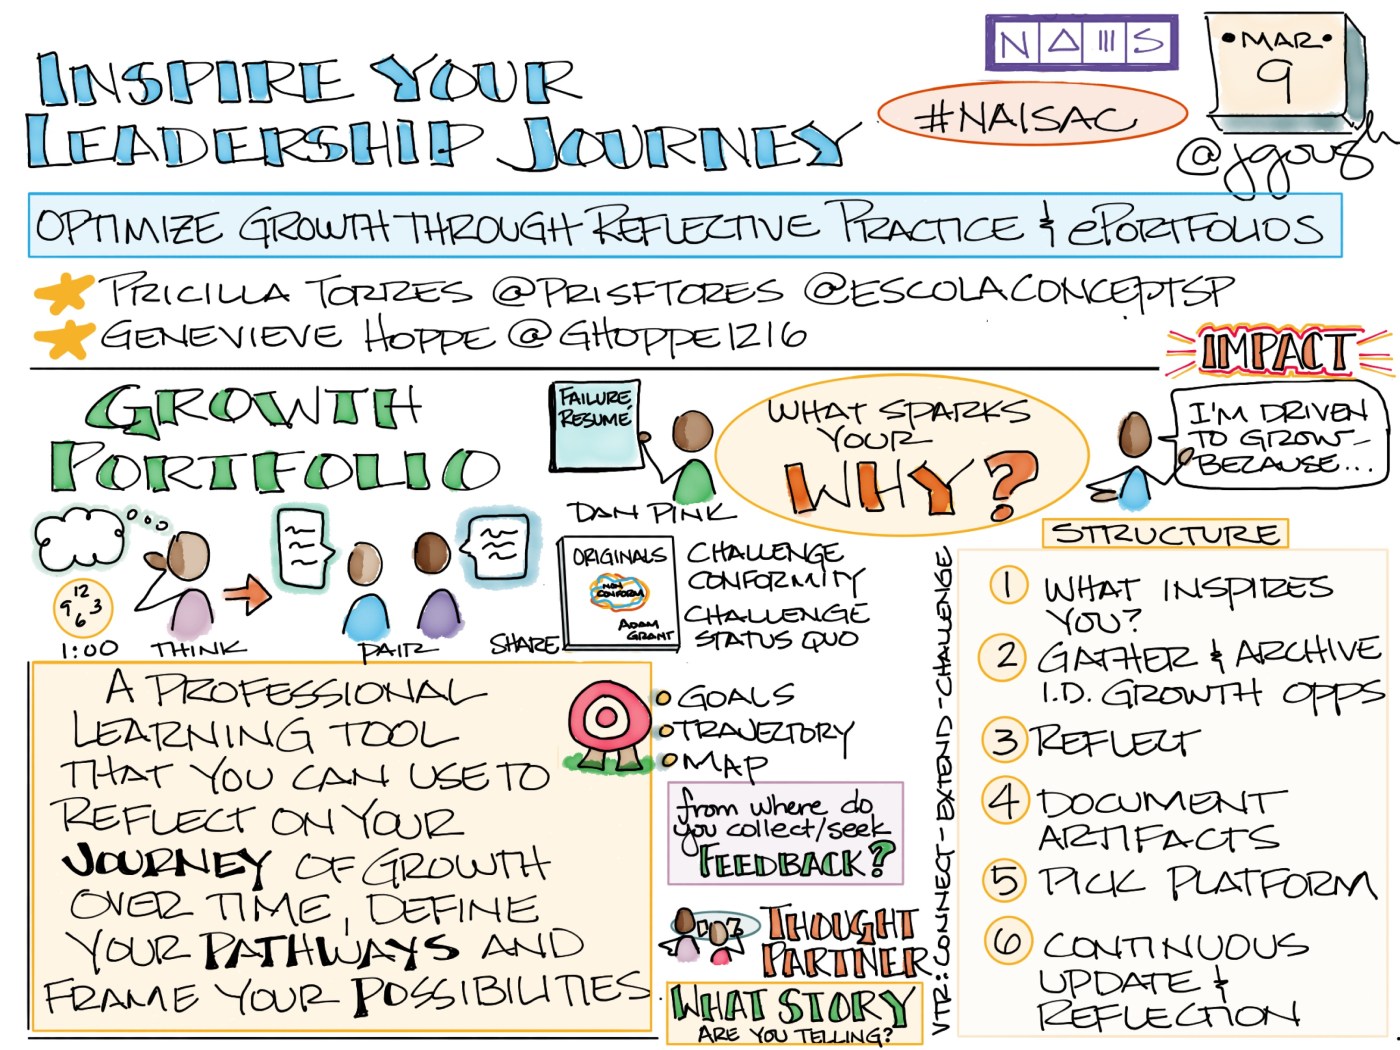 INSPIRE YOUR
LEADERSHIP JOURNEY
NAIS
#NAISAC
•MAR•
9
@jgough
OPTIMIZE GROWTH THROUGH REFLECTIVE PRACTICE & ePORTFOLIOS
PRICILLA TORRES @PRISFTORES @ESCOLACONCEPTSP
GENEVIEVE HOPPE @GHOPPE1216
IMPACT
GROWTH
PORTFOLIO
FAILURE
RESUME
DAN PINK
WHAT SPARKS
YOUR
WHY?
I'M DRIVEN
TO GROW
BECAUSE...
12
9 3
6
1:00
THINK
PAIR
SHARE
ORIGINALS
NON
CONFORM
ADAM
GRANT
CHALLENGE
CONFORMITY
CHALLENGE
STATUS QUO
A PROFESSIONAL
LEARNING TOOL
THAT YOU CAN USE TO
REFLECT ON YOUR
JOURNEY OF GROWTH
OVER TIME, DEFINE
YOUR PATHWAYS AND
FRAME YOUR POSSIBILITIES.
GOALS
TRAJECTORY
MAP
from where do
you collect/seek
FEEDBACK?
THOUGHT
PARTNER
WHAT STORY
ARE YOU TELLING?
VTR: CONNECT-EXTEND-CHALLENGE
STRUCTURE
1 WHAT INSPIRES
YOU?
2 GATHER & ARCHIVE
I.D. GROWTH OPPS
3 REFLECT
4 DOCUMENT
ARTIFACTS
5 PICK PLATFORM
6 CONTINUOUS
UPDATE &
REFLECTION